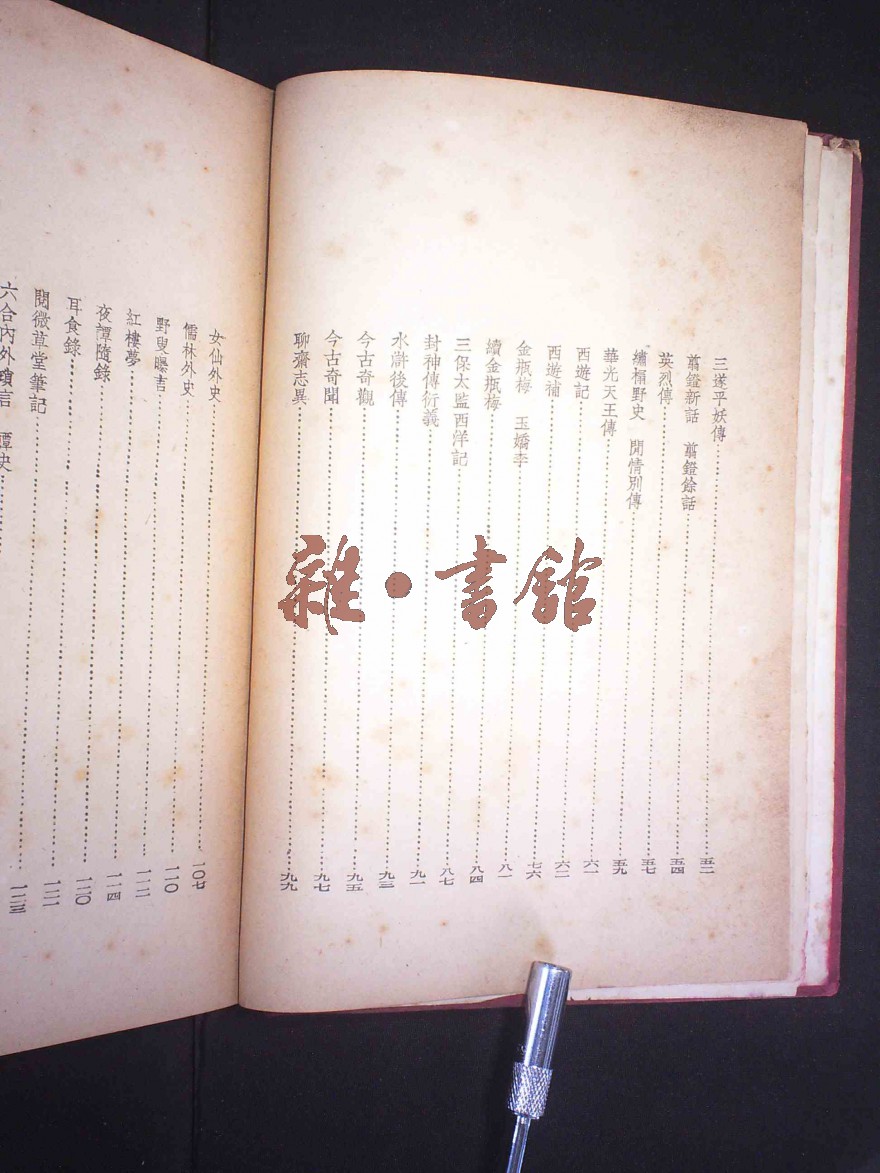 三遂平妖傳 五二
翦鐙新話 翦鐙餘話 五四
英烈傳 五四
繡榻野史 閒情別傳 五七
華光天王傳 五九
西遊記 六一
西遊補 六二
金瓶梅 玉嬌李 七六
續金瓶梅 八一
三保太監西洋記 八四
封神傳衍義 八七
水滸後傳 九一
今古奇觀 九三
今古奇聞 九五
聊齋志異 九九
女仙外史 一〇七
儒林外史 一一〇
野叟曝言 一一二
紅樓夢 一一四
夜譚隨錄 一二〇
耳食錄
閱微草堂筆記 一二三
六合內外瑣言
雜·書館